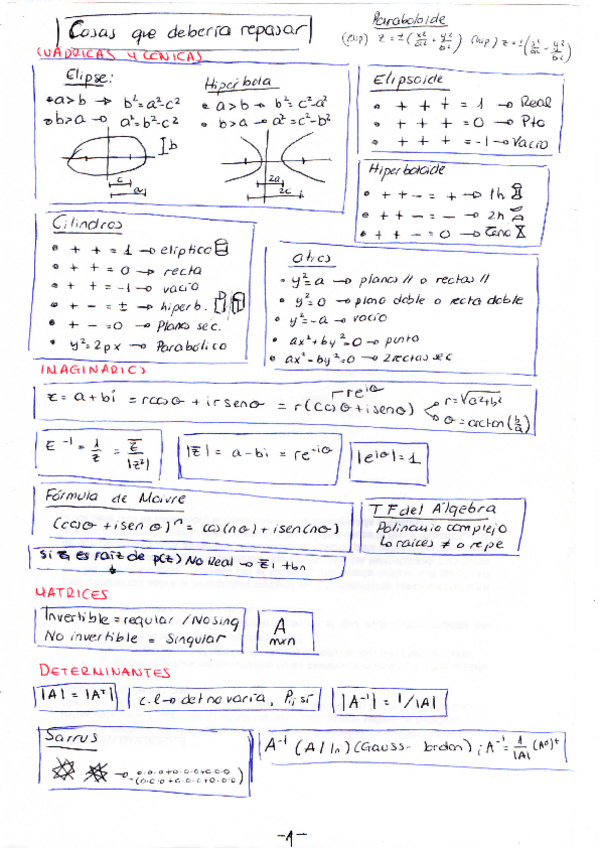 Cosas que debería repasar
Paraboloide
(elip) z = ± (x²/a² + y²/b²) (hip) z = ± (x²/a² - y²/b²)
CUÁDRICAS Y CÓNICAS
Elipse:
• a>b → b²=a²-c²
• b>a → a²=b²-c²
b
c
a
Hipérbola
• a>b → b²=c²-a²
• b>a → a²=c²-b²
2a
2c
Elipsoide
• + + + = 1 → Real
• + + + = 0 → Pto
• + + + = -1 → Vacío
Hiperboloide
• + + - = + → 1h
• + + - = - → 2h
• + + - = 0 → Cono
Cilindros
• + + = 1 → elíptico
• + + = 0 → recta
• + + = -1 → vacío
• + - = ± → hiperb.
• + - = 0 → Planos sec.
• y²=2px → Parabólico
otros
• y²=a → planos // o rectas //
• y²=0 → plano doble o recta doble
• y²=-a → vacío
• ax²+by²=0 → punto
• ax²-by²=0 → 2 rectas sec
IMAGINARIOS
z = a+bi = rcosθ + irsenθ = r(cosθ + isenθ)
re^iθ
r=√a²+b²
θ=arctan(b/a)
z⁻¹ = 1/z = z̄/|z²|
|z̄| = a-bi = re^-iθ
|e^iθ|=1
Fórmula de Moivre
(cosθ + isenθ)ⁿ = cos(nθ) + isen(nθ)
TF del Álgebra
Polinomio complejo
raíces ≠ o repe
Si z₁ es raíz de p(z) No Real → z̄₁ tbn
MATRICES
Invertible = regular / No sing
No invertible = Singular
A
mxn
DETERMINANTES
|A| = |Aᵗ|
c.l → det no varía, P, sí
|A⁻¹| = 1/|A|
Sarrus
A⁻¹ (A|In) (Gauss-Jordan) ; A⁻¹ = 1/|A| (Aᵃ)ᵗ
-1-